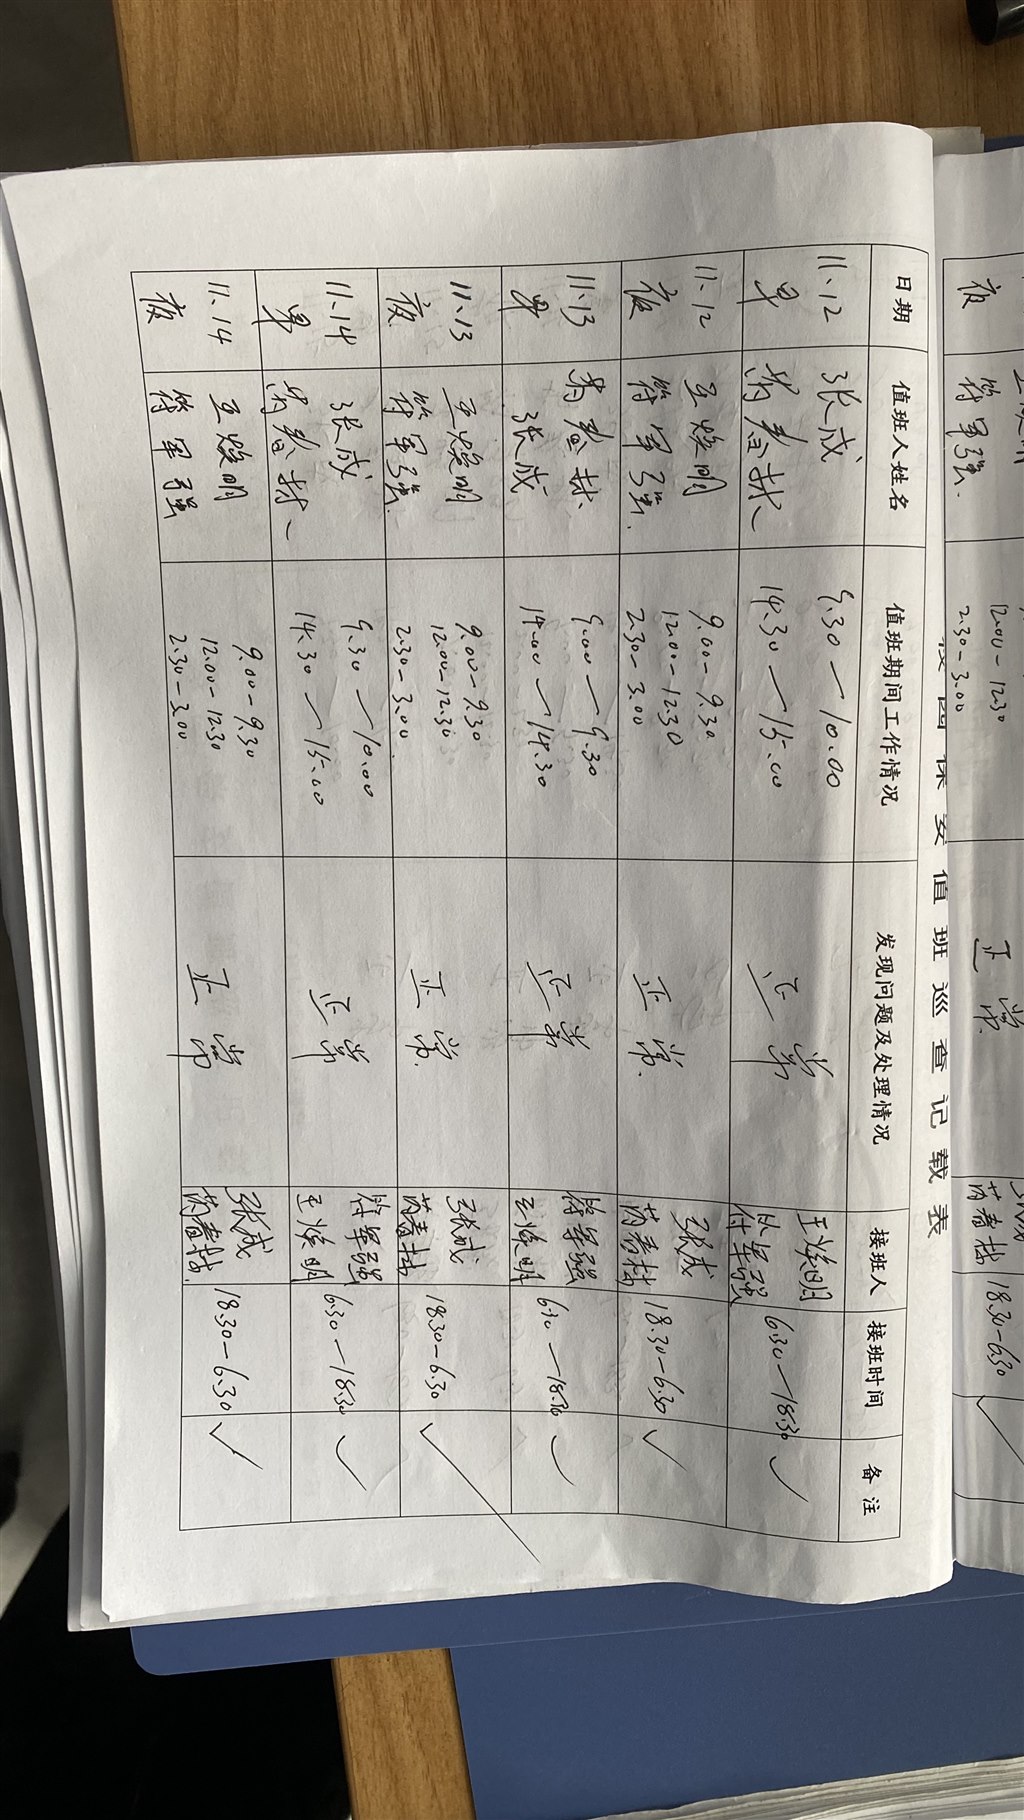 校园保安值班巡查记载表
日期 值班人姓名 值班期间工作情况 发现问题及处理情况 接班人 接班时间 备注
11.12 张成 9.30—10.00 正常 王焕明 6:30—18:30 ✓
早 芮春林 14.30—15.00 符军强
11.12 王焕明 9.00-9.30 正常 张成 18.30-6.30 ✓
夜 符军强. 12.00-12.30 芮春林
2.30-3.00
11.13 芮春林 9.00—9.30 正常 符军强 6:30—18:30 ✓
早 张成 14.00—14.30 王焕明
11.13 王焕明 9.00-9.30 正常. 张成 18.30-6.30 ✓
夜 符军强. 12.00-12.30 芮春林
2.30-3.00
11.14 张成 9.30—10.00 正常 符军强 6:30—18:30 ✓
早 芮春林 14.30—15.00 王焕明
11.14 王焕明 9.00-9.30 正常 张成 18.30-6.30 ✓
夜 符军强 12.00-12.30 芮春林
2.30-3.00
夜 符军强. 12.00-12.30 正常. 芮春林 18.30-6.30
2.30-3.00